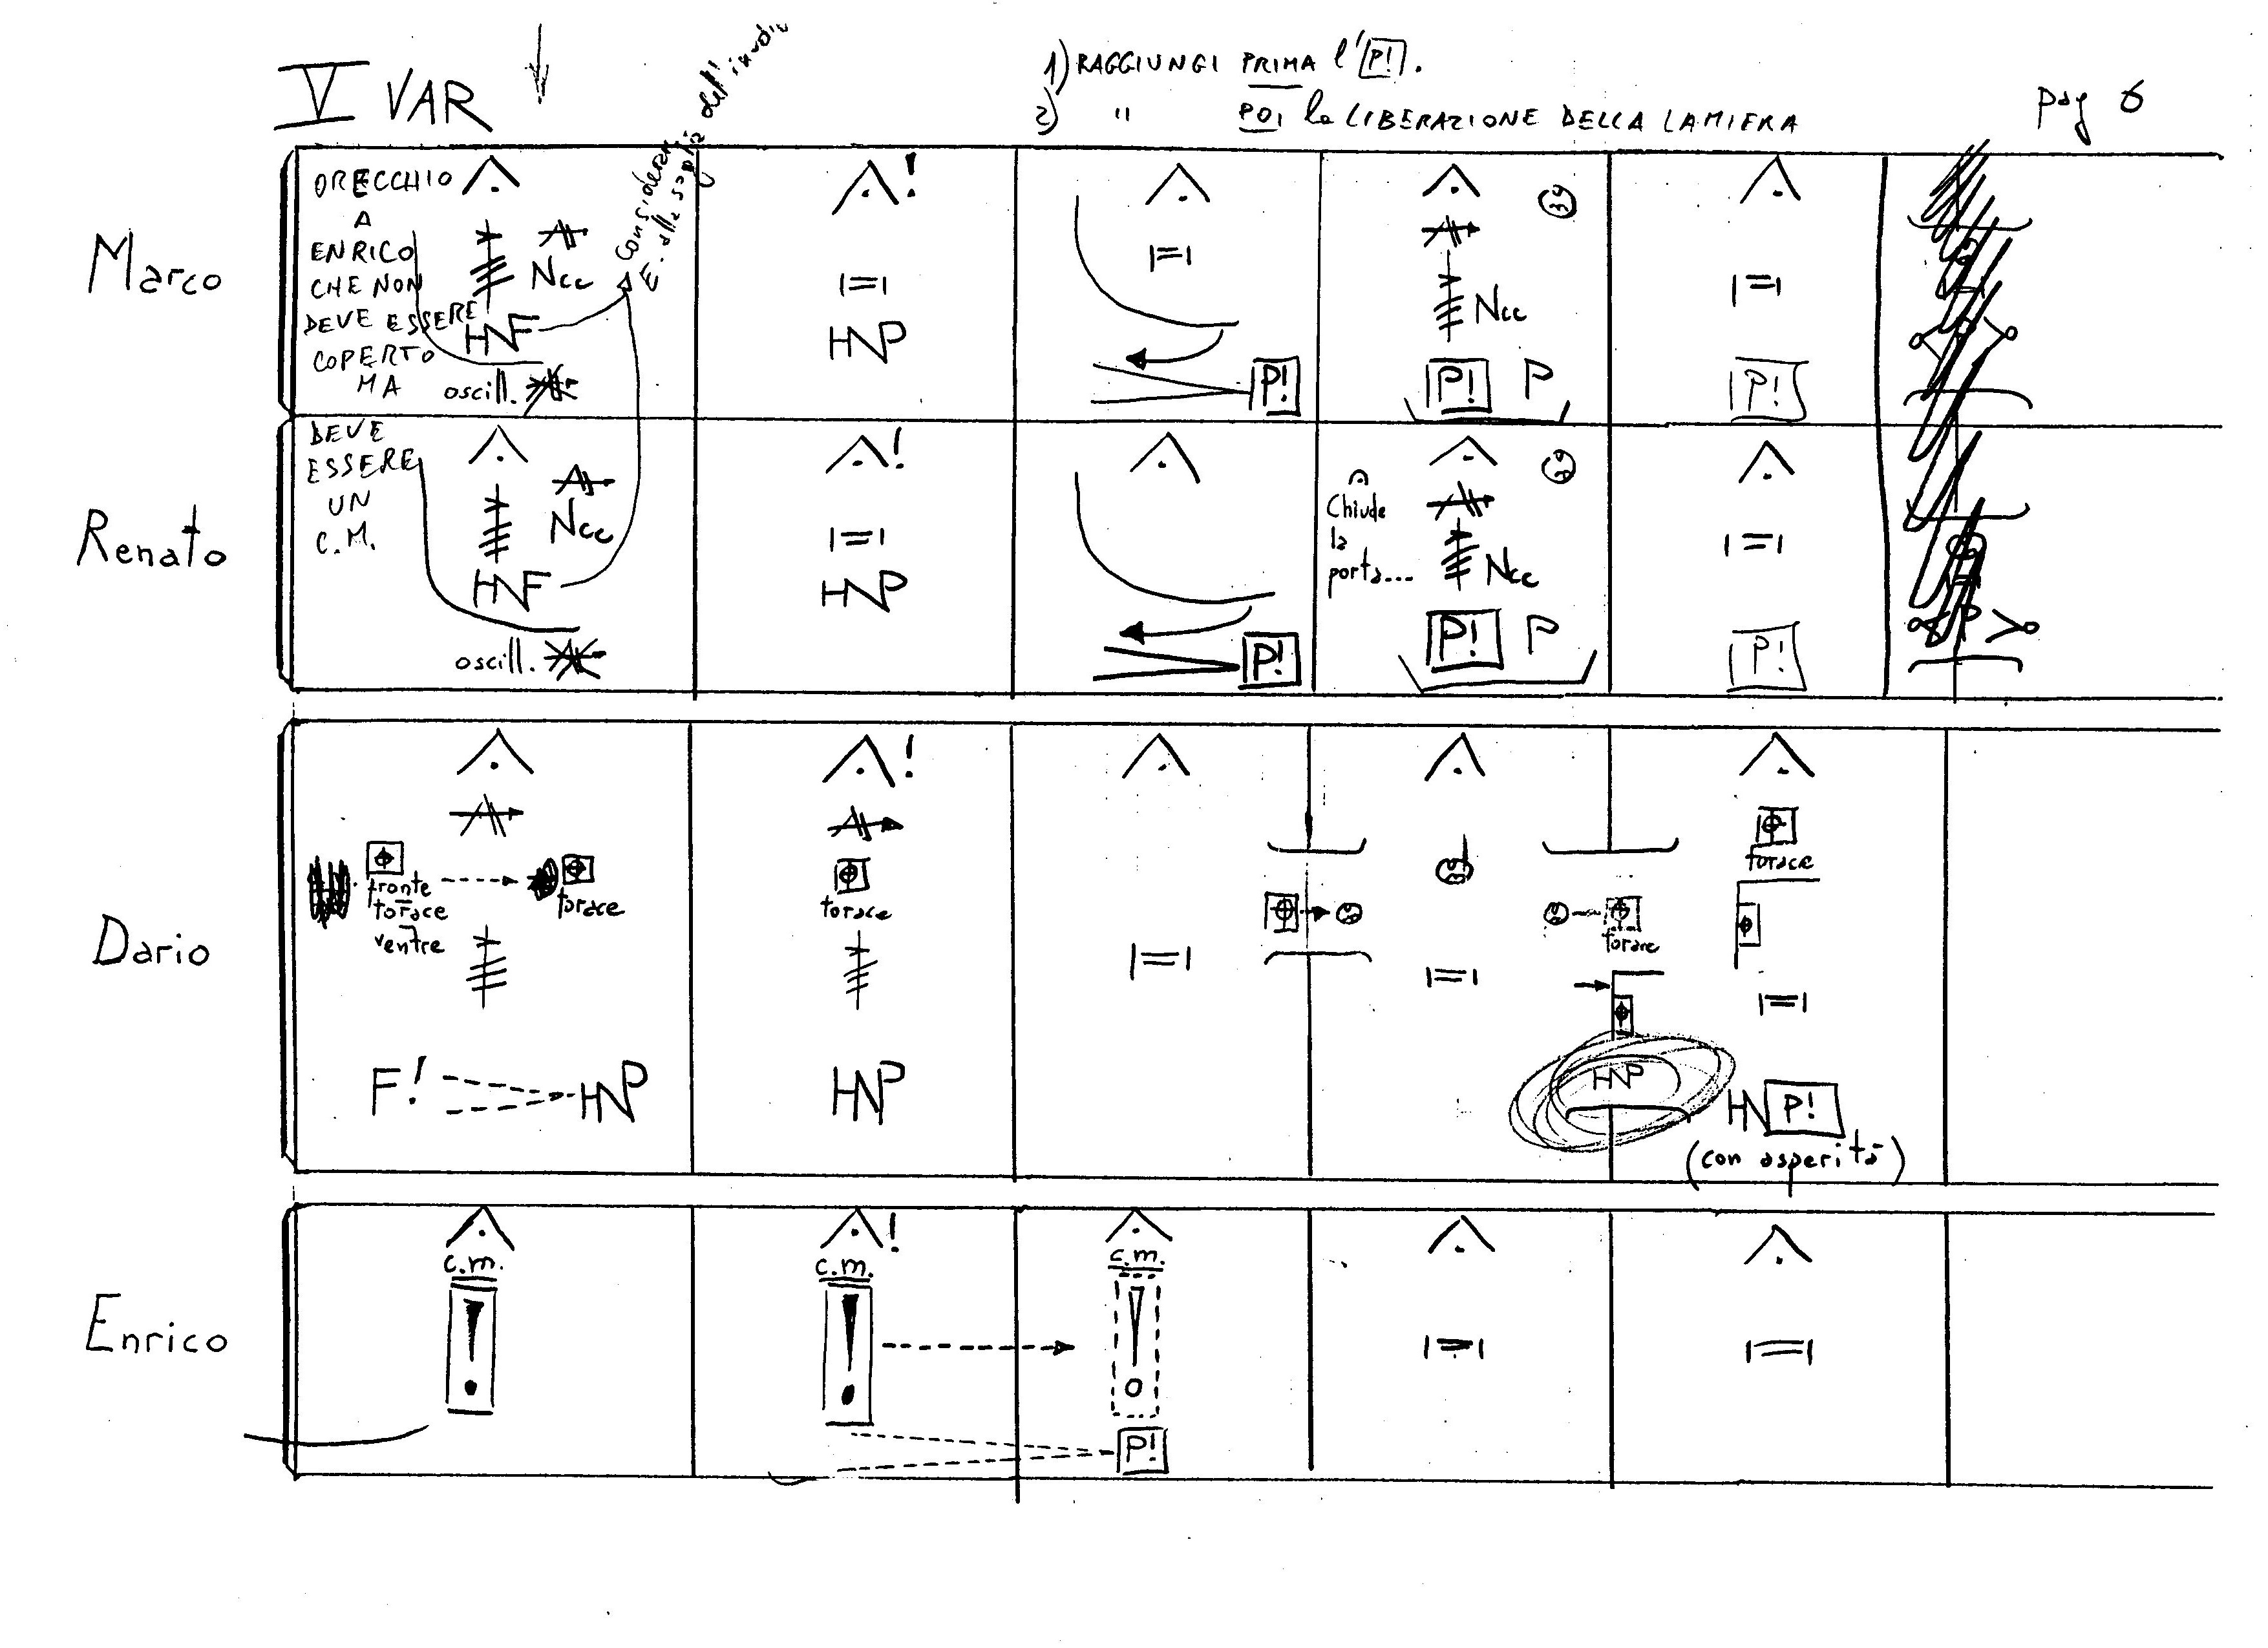 V VAR
1) RAGGIUNGI PRIMA l' P!.
2) " POI la LIBERAZIONE DELLA LAMIERA
pag 6
Marco
ORECCHIO
A
ENRICO
CHE NON
DEVE ESSERE
COPERTO
MA
Ncc
HNF
oscill.
HNP
P!
Ncc
P! P
P!
Renato
DEVE
ESSERE
UN
C.M.
Ncc
HNF
oscill.
HNP
P!
Chiude
la
porta...
Ncc
P! P
P!
Dario
fronte
torace
ventre
torace
F! HNP
torace
HNP
torace
HNP
torace
HN P!
(con asperità)
Enrico
c.m.
c.m.
c.m.
P!